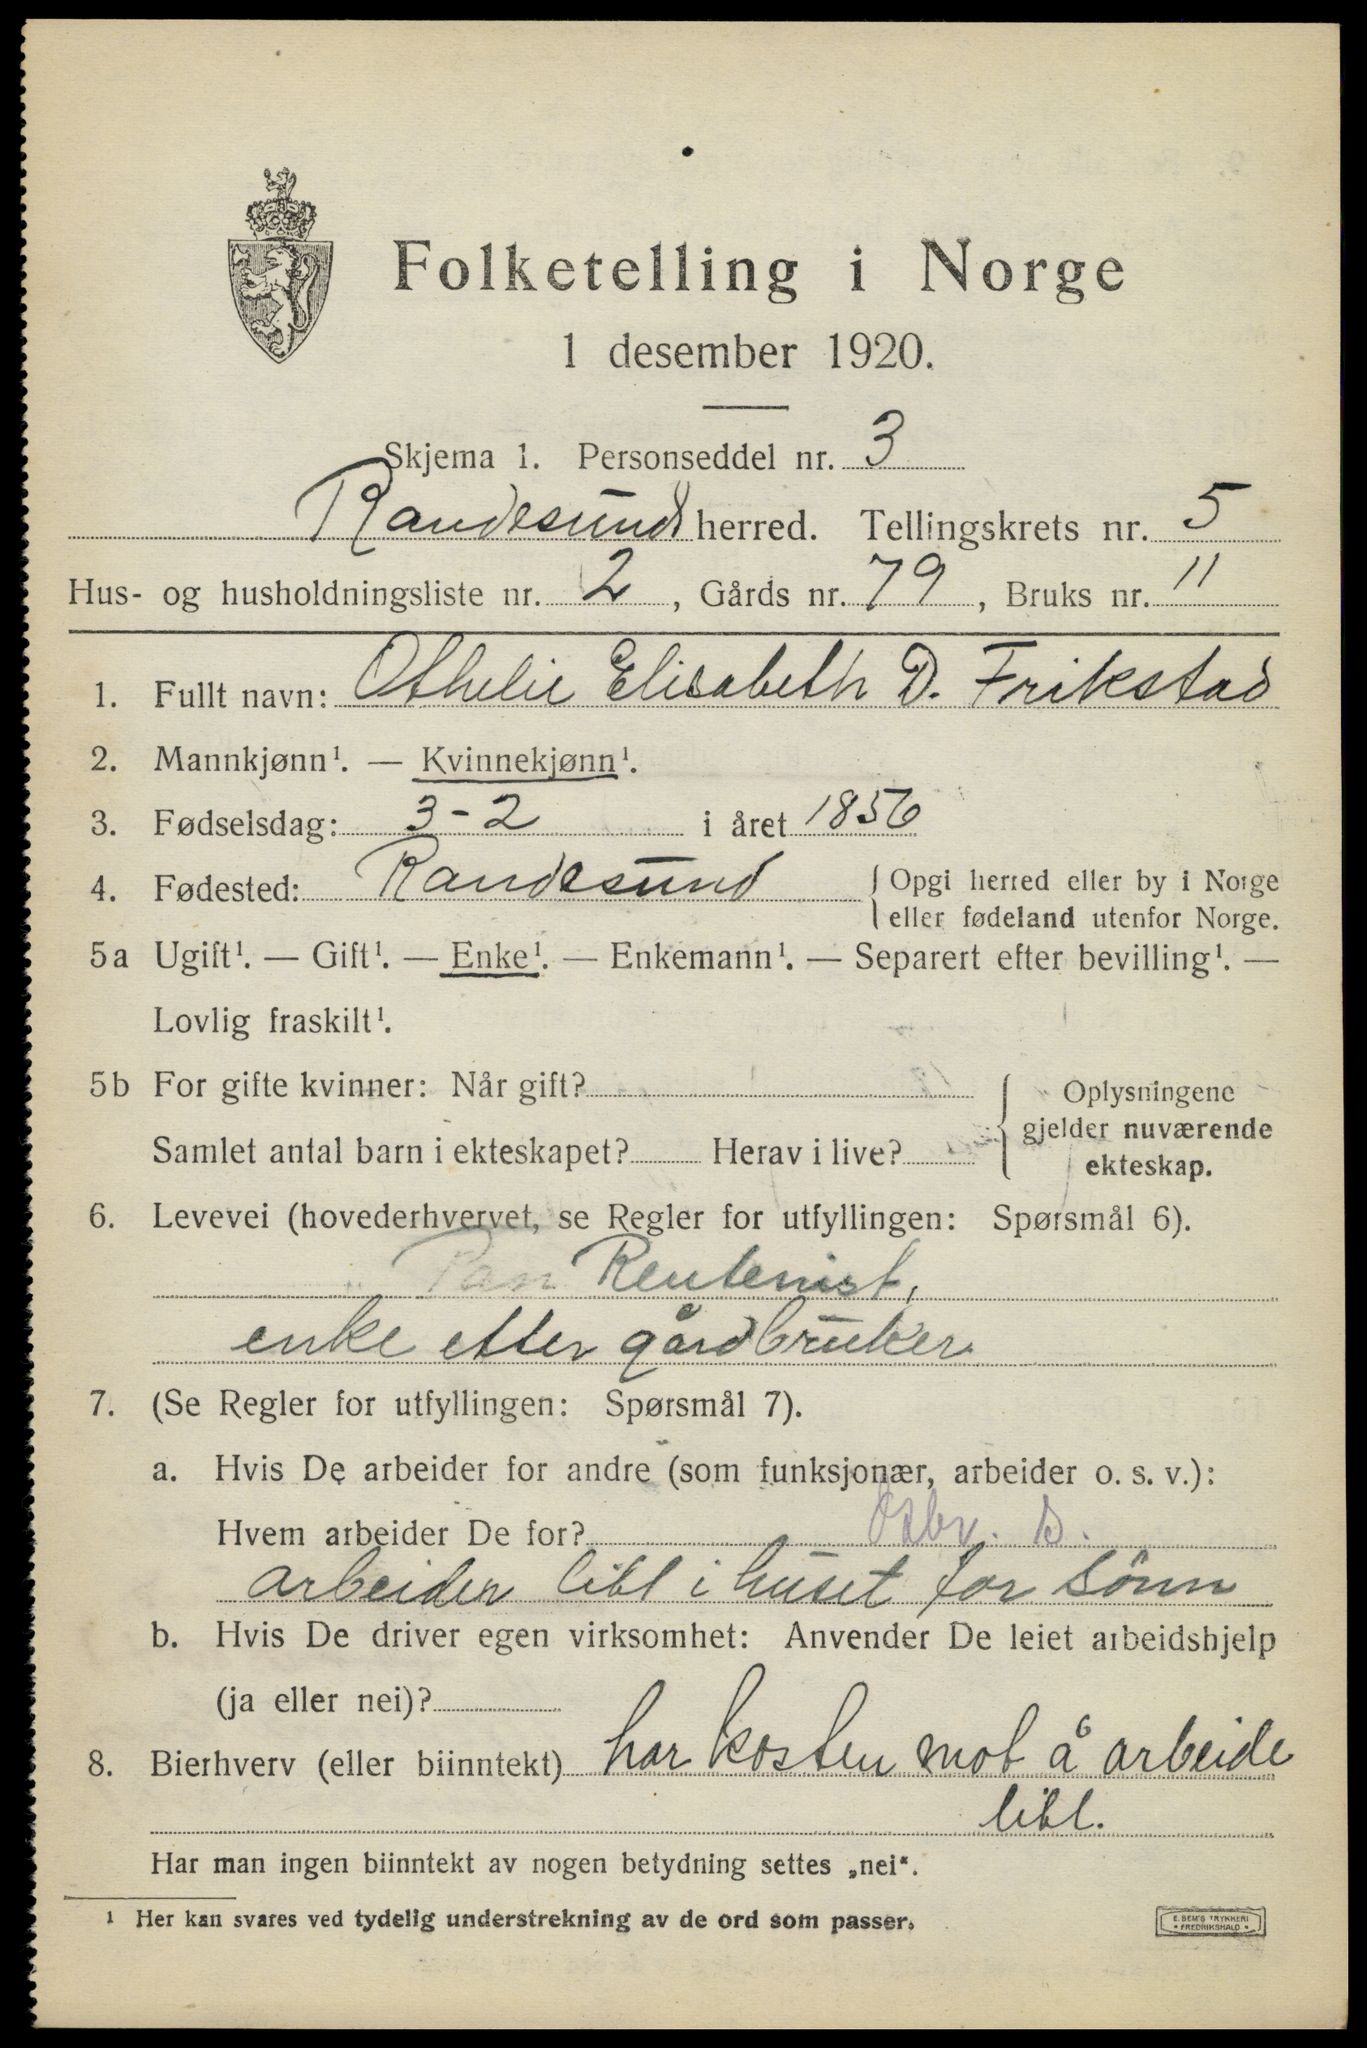 Folketelling i Norge
1 desember 1920.
Skjema 1. Personseddel nr. 3
Randesund herred. Tellingskrets nr. 5
Hus- og husholdningsliste nr. 2, Gårds nr. 79, Bruks nr. 11
1. Fullt navn: Othelie Elisabeth D. Frikstad
2. Mannkjønn¹. — Kvinnekjønn¹.
3. Fødselsdag: 3-2 i året 1856
4. Fødested: Randesund { Opgi herred eller by i Norge
eller fødeland utenfor Norge.
5a Ugift¹. — Gift¹. — Enke¹. — Enkemann¹. — Separert efter bevilling¹. —
Lovlig fraskilt¹.
5b For gifte kvinner: Når gift? Oplysningene
Samlet antal barn i ekteskapet? Herav i live? gjelder nuværende
ekteskap.
6. Levevei (hovederhvervet, se Regler for utfyllingen: Spørsmål 6).
Rentenist,
enke etter gårdbruker
7. (Se Regler for utfyllingen: Spørsmål 7).
a. Hvis De arbeider for andre (som funksjonær, arbeider o. s. v.):
Hvem arbeider De for?
arbeider litt i huset for sønn
b. Hvis De driver egen virksomhet: Anvender De leiet arbeidshjelp
(ja eller nei)?
8. Bierhverv (eller biinntekt) har kosten mot å arbeide
litt.
Har man ingen biinntekt av nogen betydning settes „nei“.
¹ Her kan svares ved tydelig understrekning av de ord som passer.
E. SEM'S TRYKKERI
* FREDRIKSHALD *